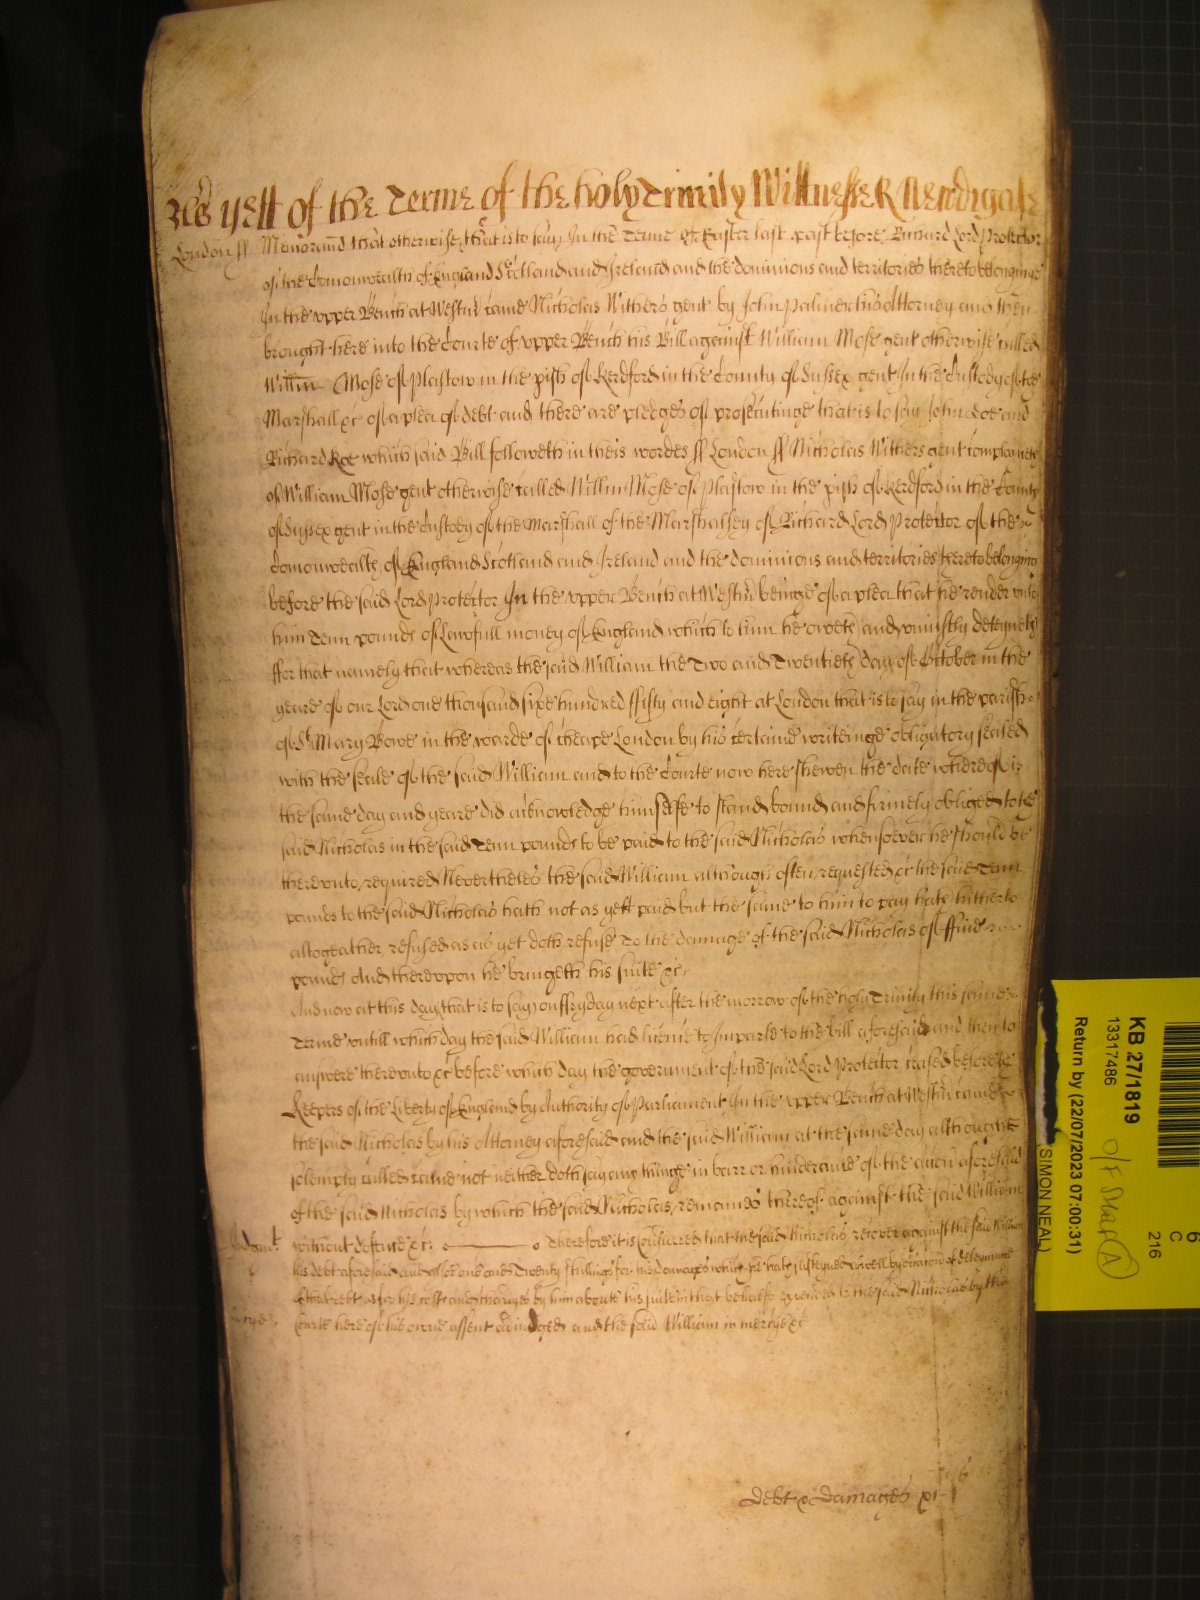 As yett of the Terme of the holy Trinity Wittnesse R Newdigate
London ss Memorand that otherwise that is to say In the Terme of Easter last past before Richard Lord Protector
of the Comonwealth of England Scotland and Ireland and the dominions and territories thereto belonginge
In the vpper Bench at Westm came Nicholas Withers gent by John Palmer his Attorney and then
brought here into the Courte of vpper Bench his Bill against William Mose gent otherwise called
Willm Mose of Plastow in the pish of Kerdford in the County of Sussex gent In the Custody of the
Marshall &c of a plea of debt and there are pledges of prosecutinge that is to say John doe and
Richard Roe which said Bill followeth in theis wordes ss London ss Nicholas Withers gent complaineth
of William Mose gent otherwise called Willm Mose of Plastow in the pish of Kerdford in the County
of Sussex gent in the Custody of the Marshall of the Marshalsey of Richard Lord Protector of the
Comonwealth of England Scotland and Ireland and the dominions and territories thereto belonging
before the said Lord Protector In the vpper Bench at Westm beinge of a plea that he render vnto
him Tenn pounds of Lawfull money of England which to him he oweth and vniustly deteyneth
ffor that namely that whereas the said William the Two and Twentieth day of October in the
yeare of our Lord one thousand sixe hundred ffifty and eight at London that is to say in the parish
of St Mary Bowe in the warde of Cheape London by his certaine writeinge obligatory sealed
with the seale of the said William and to the Courte now here shewen the date whereof is
the same day and yeare did acknowledge himselfe to stand bound and firmely obliged to the
said Nicholas in the said Tenn pounds to be paid to the said Nicholas whensoever he should be
therevnto required Neverthelesse the said William although often requested &c the said Tenn
pounds to the said Nicholas hath not as yett paid but the same to him to pay hath hitherto
altogeather refused as as yet doth refuse To the damage of the said Nicholas of ffive
pounds And therevpon he bringeth his suite &c
And now at this day that is to say on ffryday next after the morrow of the holy Trinity this same
Terme vntill which day the said William had licence to Imparle to the bill aforesaid and then to
answere therevnto &c before which day the government of the said Lord Protector ceased before the
Keepers of the Liberty of England by Authority of Parliament In the vpper Bench at Westm came
the said Nicholas by his Attorney aforesaid and the said William at the same day although
solemply called came not neither doth say any thinge in barr or hinderance of the accion aforesaid
of the said Nicholas by which the said Nicholas remaines thereof against the said William
Judgmt without defence &c Therefore it is considered that the said Nicholas recover against the said William
his debt aforesaid and alsoe one and Twenty shillings for his damages which he hath susteyned aswell by occasion of deteyninge
of that debt as for his costs and charges by him aboute his suite in that behalfe expended to the said Nicholas by the
Courte here of his owne assent adiudged and the said William in mercye &c
debt & damages xi l
KB 27/1819
13317486
Return by (22/07/2023 07:00:31)
(SIMON NEAL)
O/F Staff A
216
6
C